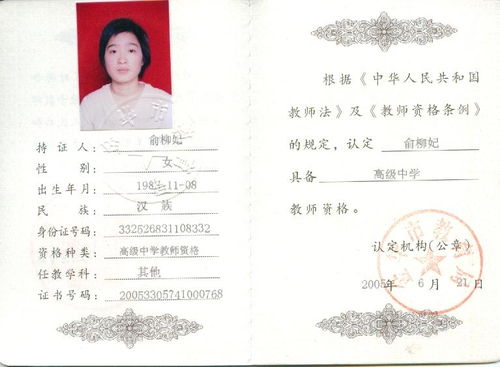 持证人： 俞柳妃
性别： 女
出生年月： 1983-11-08
民族： 汉族
身份证号码： 332526831108332
资格种类： 高级中学教师资格
任教学科： 其他
证书号码： 20053305741000768
根据《中华人民共和国
教师法》及《教师资格条例》
的规定，认定 俞柳妃
具备 高级中学
教师资格。
认定机构(公章)
2005年 6月 21日